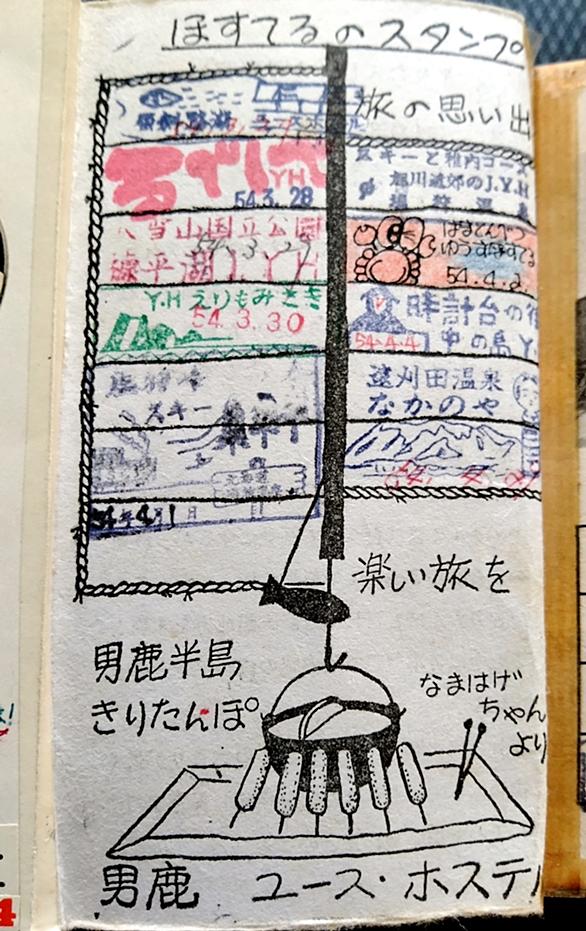 ほすてるのスタンプ
旅の思い出
YH
54.3.28
大雪山国立公園
54.3.29
糠平湖 J.Y.H
Y.H えりもみさき
54.3.30
スキー
54年4月1日
スキーと稚内コース
旭川近郊のJ.Y.H
温泉
はまとんべつ
ゆうすほすてる
54.4.2
時計台の
中の島Y.
54.4.4
遠刈田温泉
なかのや
楽しい旅を
男鹿半島
きりたんぽ
なまはげ
ちゃん
より
男鹿 ユース・ホステル